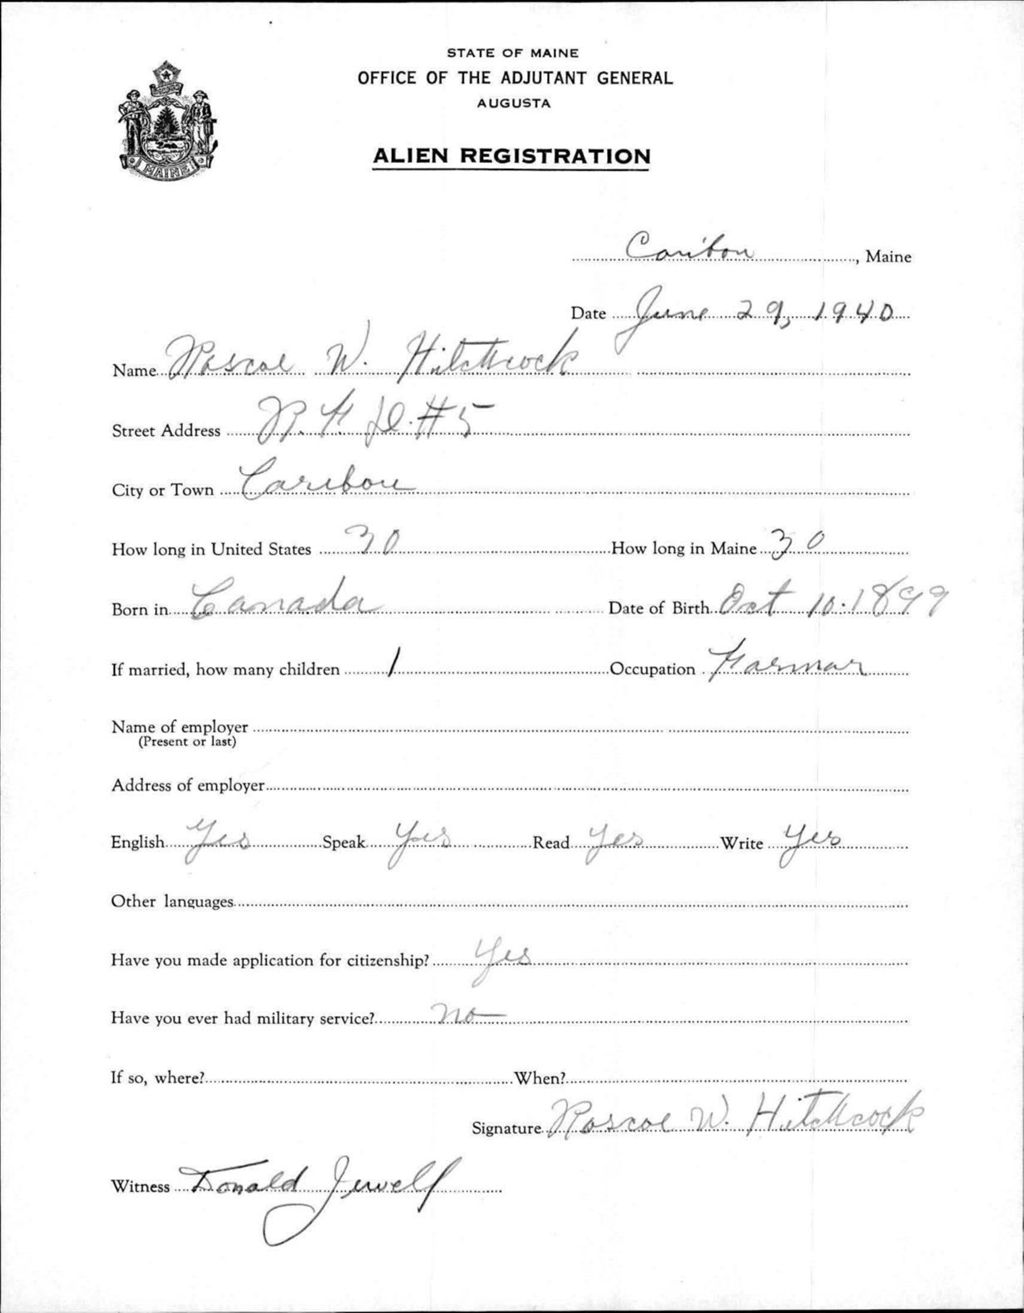 STATE OF MAINE
OFFICE OF THE ADJUTANT GENERAL
AUGUSTA
ALIEN REGISTRATION
MAINE
Caribou, Maine
Date June 29, 1940
Name Roscoe W. Hitchcock
Street Address R. F. D. #5
City or Town Caribou
How long in United States 30 How long in Maine 30
Born in Canada Date of Birth Oct 10. 1899
If married, how many children 1 Occupation Farmar
Name of employer
(Present or last)
Address of employer
English Yes Speak Yes Read Yes Write Yes
Other languages
Have you made application for citizenship? Yes
Have you ever had military service? no
If so, where? When?
Signature Roscoe W. Hitchcock
Witness Donald Jewell